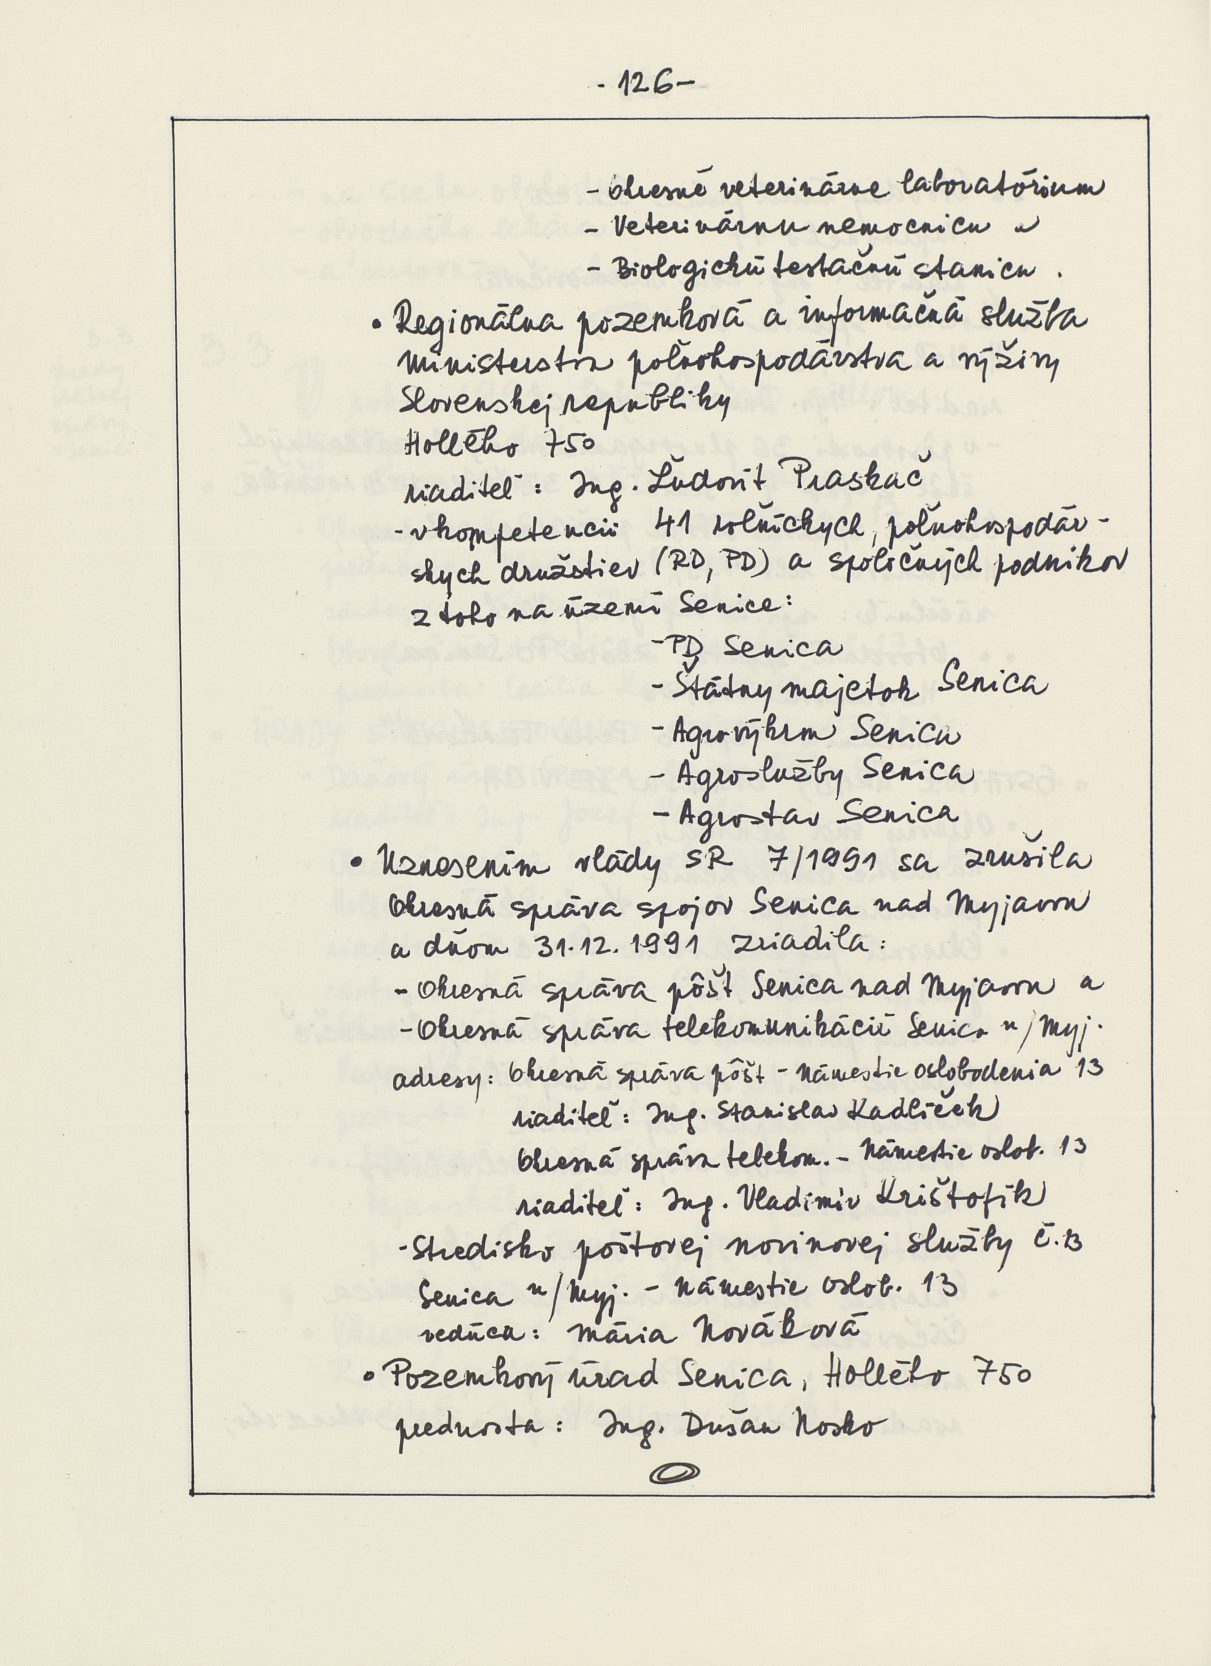 - 126 -
- Okresné veterinárne laboratórium
- Veterinárnu nemocnicu a
- Biologickú testačnú stanicu .
• Regionálna pozemková a informačná služba
Ministerstva poľnohospodárstva a výživy
Slovenskej republiky
Hollého 750
riaditeľ : Ing. Ľudovít Praskač
- v kompetencii 41 roľníckych, poľnohospodár -
skych družstiev (RD, PD) a spoločných podnikov
z toho na území Senice:
- PD Senica
- Štátny majetok Senica
- Agrovýkrm Senica
- Agroslužby Senica
- Agrostav Senica
• Uznesením vlády SR 7/1991 sa zrušila
Okresná správa spojov Senica nad Myjavou
a dňom 31.12.1991 zriadila :
- Okresná správa pôšt Senica nad Myjavou a
- Okresná správa telekomunikácií Senica n/Myj.
adresy: Okresná správa pôšt - Námestie oslobodenia 13
riaditeľ : Ing. Stanislav Kadlíček
Okresná správa telekom. - Námestie oslob. 13
riaditeľ : Ing. Vladimír Krištofík
- Stredisko poštovej novinovej služby č. 13
Senica n/Myj. - Námestie oslob. 13
vedúca : Mária Nováková
• Pozemkový úrad Senica, Hollého 750
prednosta : Ing. Dušan Nosko